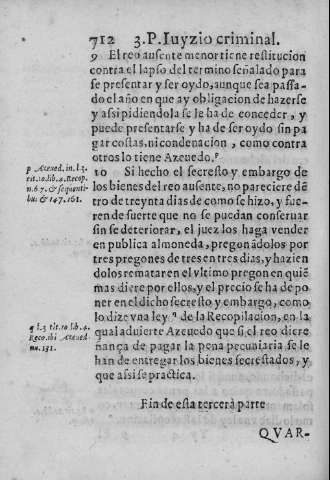 712 3.P. Iuyzio criminal.
9 El reo ausente menor tiene restitucion
contra el lapso del termino señalado para
se presentar y ser oydo, aunque sea passa-
do el año en que ay obligacion de hazerse
y assi pidiendola se le ha de conceder, y
puede presentarse y ha de ser oydo sin pa
gar costas, ni condenacion, como contra
otros lo tiene Azeuedo.p
p Azeued. in. l.3.
tit.10.lib.4.Recop.
n.67. & sequenti-
bus & 147.161.
10 Si hecho el secresto y embargo de
los bienes del reo ausente, no pareciere dẽ
tro de treynta dias de como se hizo, y fue-
ren de suerte que no se puedan conseruar
sin se deteriorar, el juez los haga vender
en publica almoneda, pregonãdolos por
tres pregones de tres en tres dias, y hazien
dolos rematar en el vltimo pregon en quiẽ
mas diere por ellos, y el precio se ha de po
ner en el dicho secresto y embargo, como
lo dize vna ley q de la Recopilacion, en la
qual aduierte Azeuedo que si el reo diere
fiança de pagar la pena pecuniaria se le
han de entregar los bienes secrestados, y
que assi se practica.
q l.3 tit.10 lib.4.
Reco.ibi Azeued.
nu.151.
Fin de esta tercera parte
QVAR-